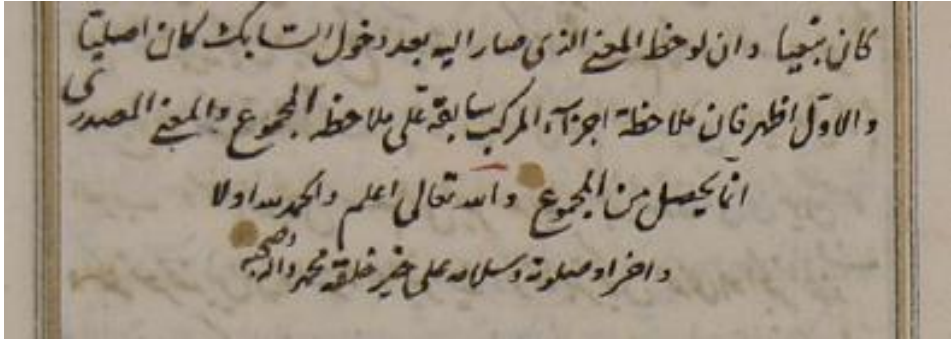 كان تبعيا وان لوحظ المعنى الذى صار اليه بعد دخول السابك كان اصليا
والاول اظهر فان ملاحظة اجزآء المركب سابقة على ملاحظه المجموع والمعنى المصدرى
انما يحصل من المجموع والله تعالى اعلم والحمد لله اولا
واخرا وصلوته وسلامه على خير خلقه محمد واله وصحبه